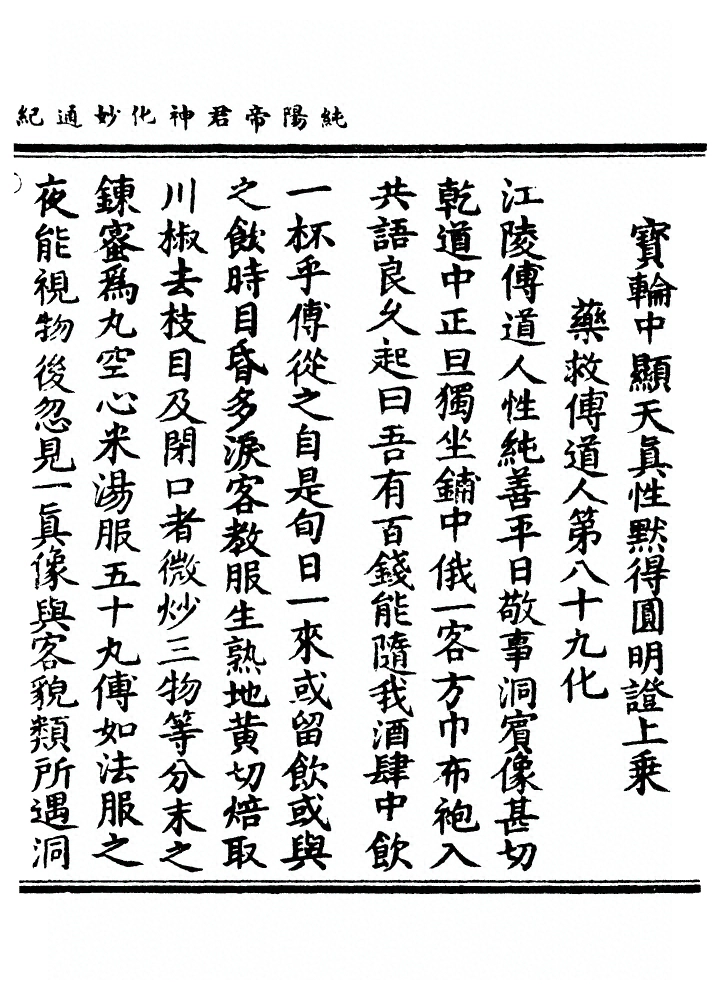 純陽帝君神化妙通紀
寳輪中顯天眞性默得圓明證上乗
藥救傅道人第八十九化
江陵傅道人性純善平日敬事洞賓像甚切
乾道中正旦獨坐鋪中俄一客方巾布袍入
共語良久起曰吾有百錢能隨我酒肆中飲
一杯乎傅從之自是旬日一來或留飲或與
之飲時目昏多淚客教服生熟地黄切焙取
川椒去枝目及閉口者微炒三物等分末之
鍊蜜爲丸空心米湯服五十丸傅如法服之
夜能視物後忽見一眞像與客貌類所遇洞